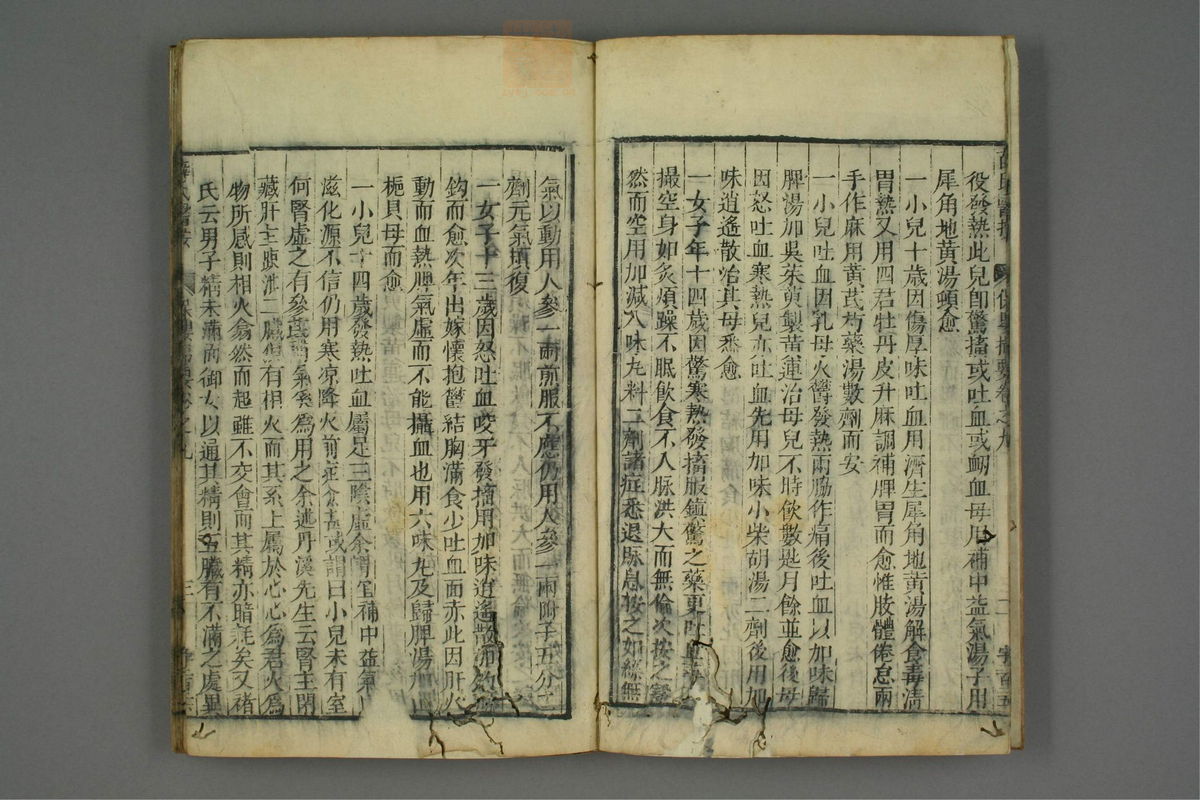 役發熱此兒卽驚搐或吐血或衄血母用補中益氣湯子用
犀角地黃湯頓愈
一小兒十歲因傷厚味吐血用濟生犀角地黃湯解食毒清
胃熱又用四君牡丹皮升麻調補脾胃而愈惟肢體倦怠兩
手作麻用黃芪芍藥湯數劑而安
一小兒吐血因乳母火鬱發熱兩脇作痛後吐血以加味歸
脾湯加吳茱萸製黃連治母兒不時飮數匙月餘並愈後母
因怒吐血寒熱兒亦吐血先用加味小柴胡湯二劑後用加
味逍遙散治其母悉愈
一女子年十四歲因驚寒熱發搐服鎮驚之藥更吐血
撮空身如炙煩躁不眠飲食不入脉洪大而無倫次按之
然而空用加減八味丸料二劑諸症悉退脉息按之如絲無
氣以動用人參一兩煎服不應仍用人參一兩附子五分二
劑元氣頃復
一女子十三歲因怒吐血咬牙發搐用加味逍遙散加鈎
鈎而愈次年出嫁懷抱鬱結胸滿食少吐血面赤此因肝火
動而血熱脾氣虛而不能攝血也用六味丸及歸脾湯加山
梔貝母而愈
一小兒十四歲發熱吐血屬足三陰虛余謂宜補中益氣
滋化源不信仍用寒凉降火前症愈甚或謂曰小兒未有室
何腎虛之有參芪補氣奚爲用之余述丹溪先生云腎主閉
藏肝主踈泄二臟俱有相火而其系上屬於心心爲君火爲
物所感則相火翕然而起雖不交會而其精亦暗耗矣又褚
氏云男子精未滿而御女以通其精則五臟有不滿之處異